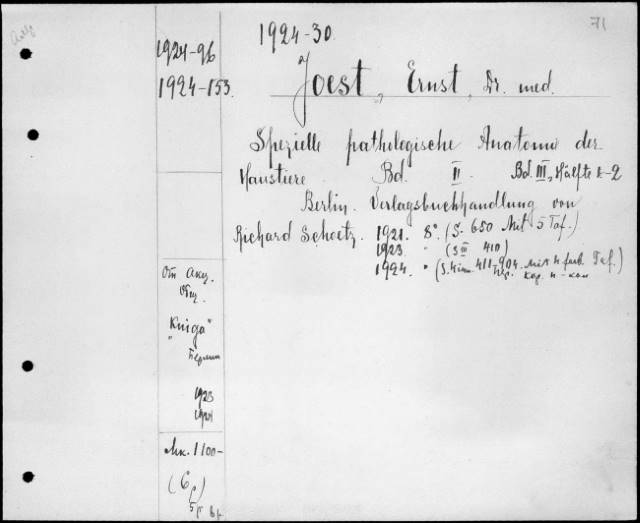 71
1924-30.
1924-96
1924-153.
Joest, Ernst, Dr. med.
Spezielle pathologische Anatomie der
Haustiere Bd. II. Bd. III, Hälfte 1-2
Berlin. Verlagsbuchhandlung von
Richard Schoetz. 1921. 8°. (S. 650 Mit 5 Taf.)
1923. " (S. 410)
1924. " (S. 411-904. Mit 4 farb. Taf.)
От Акц.
Общ.
"Kniga"
Берлин
1923
1924
Мк. 1100-
(6р)